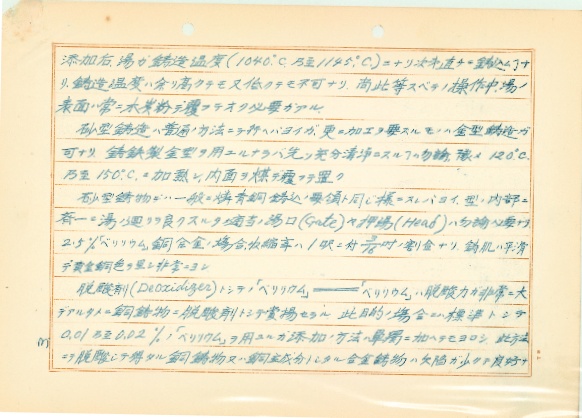 添加后湯ガ鋳造温度(1040°C 乃至1145°C)ニナリ次第直チニ鋳込ムコトナリ
鋳造温度ハ余リ高クテモ又低クテモ不可ナリ 尚此等スベテノ操作中湯ノ
表面ハ常ニ木炭粉デ覆フテオク必要ガアル
砂型鋳造ハ普通ノ方法ニテ行ヘバヨイガ 更ニ加工ヲ要スルモノハ金型鋳造ガ
可ナリ 鋳鉄製金型ヲ用ユルナラバ先ヅ充分清浄ニスルコトハ勿論 予メ 120°C
乃至150°C ニ加熱シ内面ヲ煤デ覆フテ置ク
砂型鋳物ニハ一般ニ燐青銅鋳込ノ要領ト同ジ様ニスレバヨイ 型ノ内部ニ
春一ニ湯ノ廻リヲ良クスルタメ適当ノ湯口(Gate)や押湯(Head)ハ勿論必要ナリ
2.5%「ベリリウム」銅合金ノ場合収縮率ハ1呎ニ付 3/16吋ノ割合ナリ 鋳肌ハ平滑
デ黄金銅色ヲ呈シ非常ニヨシ
脱酸剤(Deoxidizer)トシテノ「ベリリウム」 「ベリリウム」ハ脱酸力ガ非常ニ大
デアルタメ銅鋳物ニ脱酸剤トシテ賞揚セラル 此目的ノ場合ニハ標準トシテ
0.01乃至0.02%ノ「ベリリウム」ヲ用ユルガ添加ノ方法ハ単独ニ加ヘテモヨロシ 此方法
ニテ脱酸シテ得タル銅鋳物又ハ銅主成分トシタル合金鋳物ハ欠陥ガ少クテ良好ナ